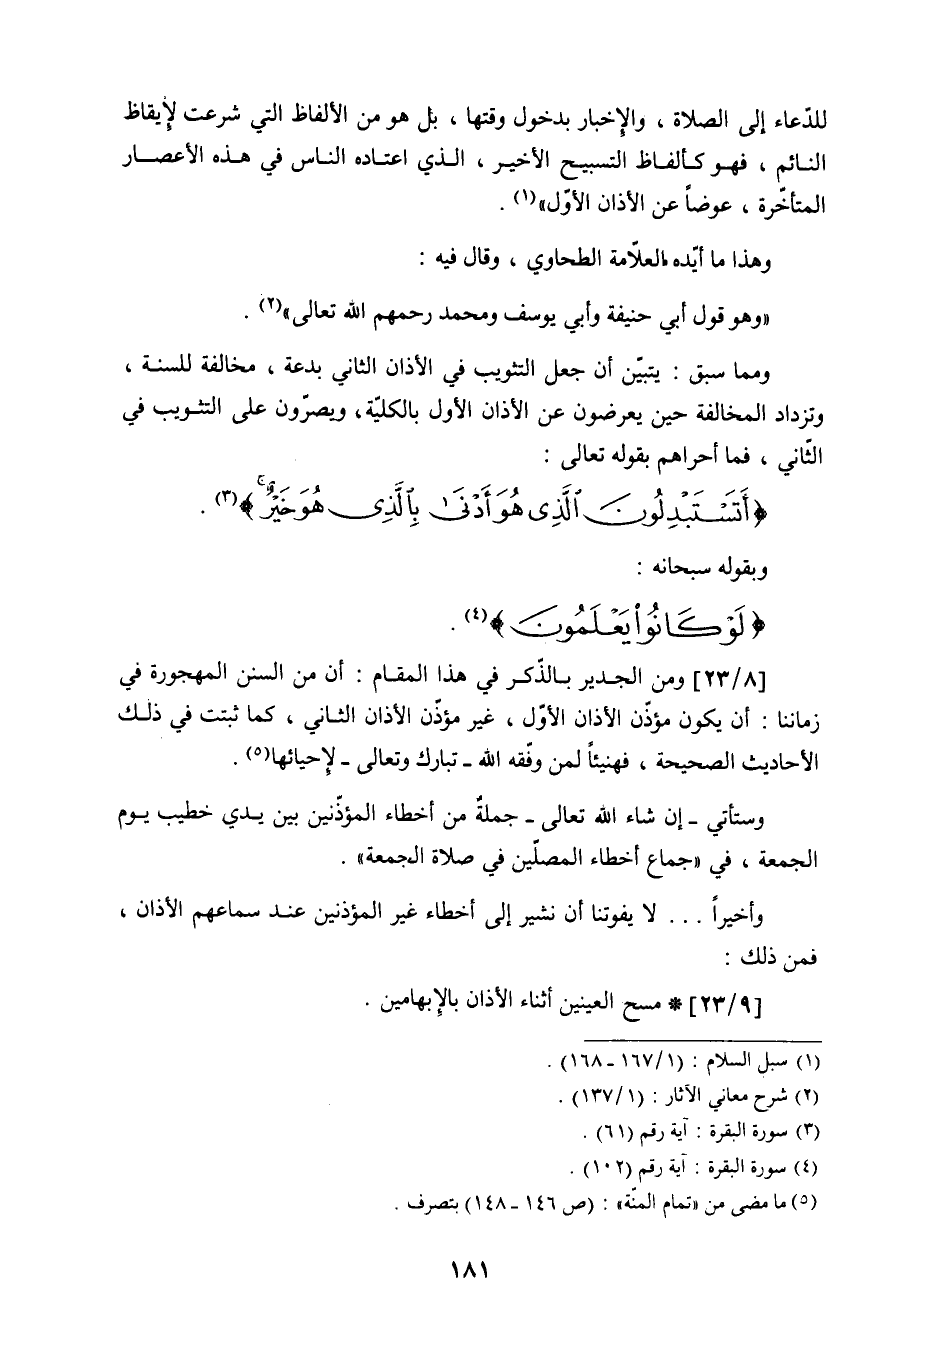 للدّعاء إلى الصلاة ، والإخبار بدخول وقتها ، بل هو من الألفاظ التي شرعت لإيقاظ
النائم ، فهو كألفاظ التسبيح الأخير ، الذي اعتاده الناس في هذه الأعصار
المتأخّرة ، عوضاً عن الأذان الأوّل»(١) .
وهذا ما أيّده العلّامة الطحاوي ، وقال فيه :
«وهو قول أبي حنيفة وأبي يوسف ومحمد رحمهم الله تعالى»(٢) .
ومما سبق : يتبيّن أن جعل التثويب في الأذان الثاني بدعة ، مخالفة للسنة ،
وتزداد المخالفة حين يعرضون عن الأذان الأول بالكليّة، ويصرّون على التثويب في
الثّاني ، فما أحراهم بقوله تعالى :
﴿أَتَسْتَبْدِلُونَ ٱلَّذِى هُوَ أَدْنَىٰ بِٱلَّذِى هُوَ خَيْرٌ ۚ﴾(٣) .
وبقوله سبحانه :
﴿لَوْ كَانُوا۟ يَعْلَمُونَ﴾(٤) .
[٢٣/٨] ومن الجدير بالذّكر في هذا المقام : أن من السنن المهجورة في
زماننا : أن يكون مؤذّن الأذان الأوّل ، غير مؤذّن الأذان الثاني ، كما ثبتت في ذلك
الأحاديث الصحيحة ، فهنيئاً لمن وفّقه الله ـ تبارك وتعالى ـ لإحيائها(٥) .
وستأتي ـ إن شاء الله تعالى ـ جملةٌ من أخطاء المؤذّنين بين يدي خطيب يوم
الجمعة ، في «جماع أخطاء المصلّين في صلاة الجمعة» .
وأخيراً . . . لا يفوتنا أن نشير إلى أخطاء غير المؤذنين عند سماعهم الأذان ،
فمن ذلك :
[٢٣/٩] * مسح العينين أثناء الأذان بالإبهامين .
(١) سبل السلام : (١/ ١٦٧ ـ ١٦٨) .
(٢) شرح معاني الآثار : (١/ ١٣٧) .
(٣) سورة البقرة : آية رقم (٦١) .
(٤) سورة البقرة : آية رقم (١٠٢) .
(٥) ما مضى من «تمام المنّة» : (ص ١٤٦ ـ ١٤٨) بتصرف .
١٨١